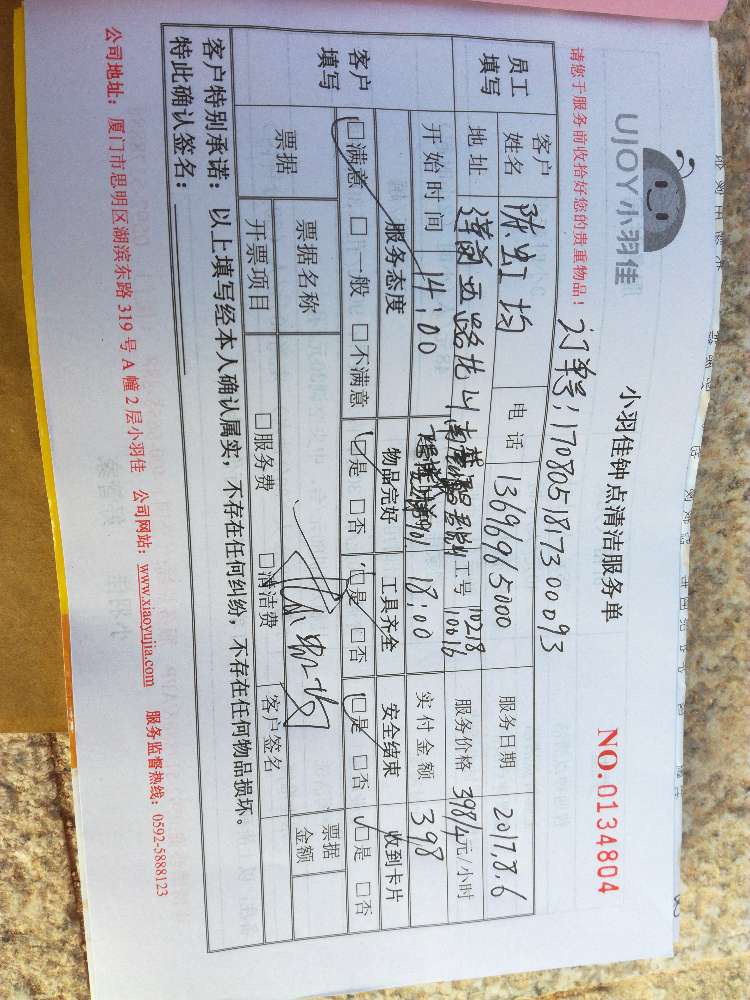 UJOY小羽佳
小羽佳钟点清洁服务单
NO.0134804
请您于服务前收拾好您的贵重物品！
订单号：1708051817300093
员工填写 客户姓名 陈虹均 电话 13696965000 服务日期 2017.8.6
地址 莲前西路龙山南 工号 10218 10016 服务价格 398/4元/小时
开始时间 14:00 18:00 实付金额 398
客户填写 服务态度 物品完好 工具齐全 安全结束 收到卡片
☑满意 □一般 □不满意 ☑是 □否 ☑是 □否 ☑是 □否 ☑是 □否
票据 票据名称 客户签名 票据金额
开票项目 □服务费 □清洁费
客户特别承诺：以上填写经本人确认属实，不存在任何纠纷，不存在任何物品损坏。
特此确认签名：
公司地址：厦门市思明区湖滨东路319号A幢2层小羽佳 公司网站：www.xiaoyujia.com 服务监督热线：0592-5888123